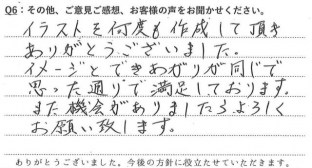 Q6：その他、ご意見ご感想、お客様の声をお聞かせください。
イラストを何度も作成して頂き
ありがとうございました。
イメージとできあがりが同じで
思った通りで満足しております。
また機会がありましたらよろしく
お願い致します。
ありがとうございました。今後の方針に役立たせていただきます。